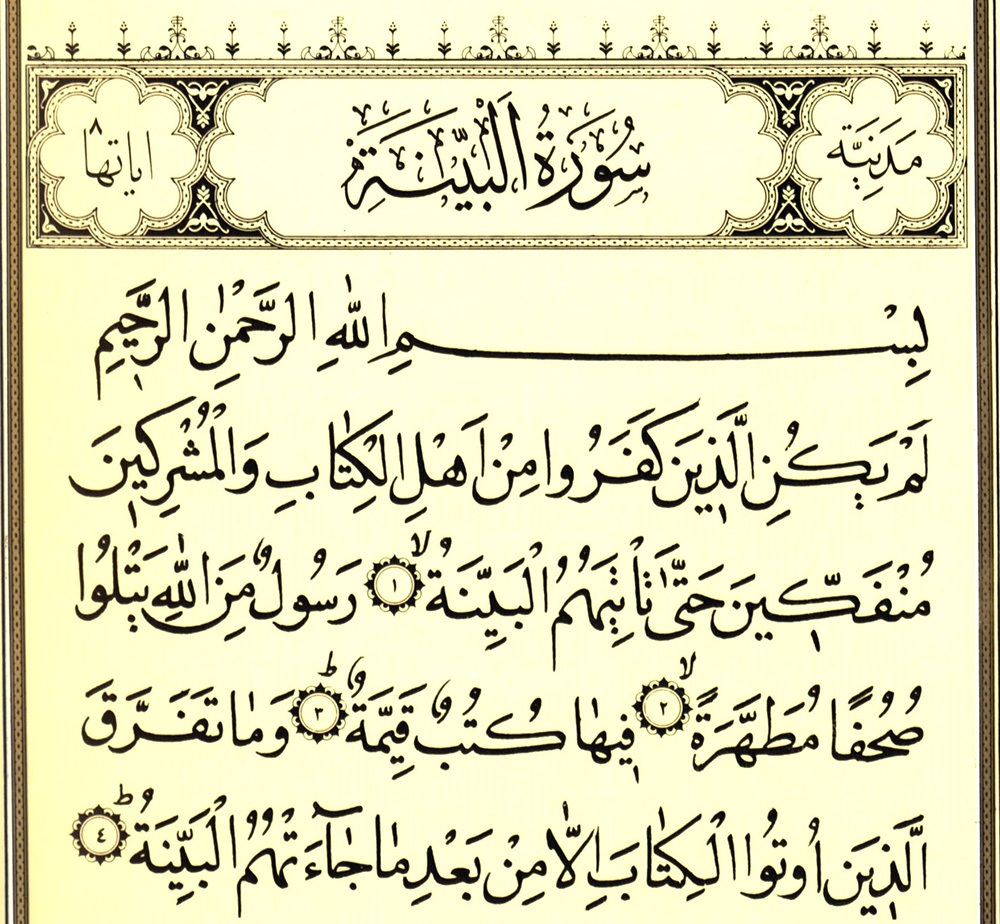 مَدَنِيَّة سُورَةُ الْبَيِّنَةِ اياتها ٨
بِسْمِ اللّٰهِ الرَّحْمٰنِ الرَّحِيمِ
لَمْ يَكُنِ الَّذِينَ كَفَرُوا مِنْ اَهْلِ الْكِتَابِ وَالْمُشْرِكِينَ
مُنْفَكِّينَ حَتّٰى تَأْتِيَهُمُ الْبَيِّنَةُ ۙ ١ رَسُولٌ مِنَ اللّٰهِ يَتْلُوا
صُحُفًا مُطَهَّرَةً ۙ ٢ فِيهَا كُتُبٌ قَيِّمَةٌ ؕ ٣ وَمَا تَفَرَّقَ
الَّذِينَ اُوتُوا الْكِتَابَ اِلَّا مِنْ بَعْدِ مَا جَٓاءَتْهُمُ الْبَيِّنَةُ ؕ ٤